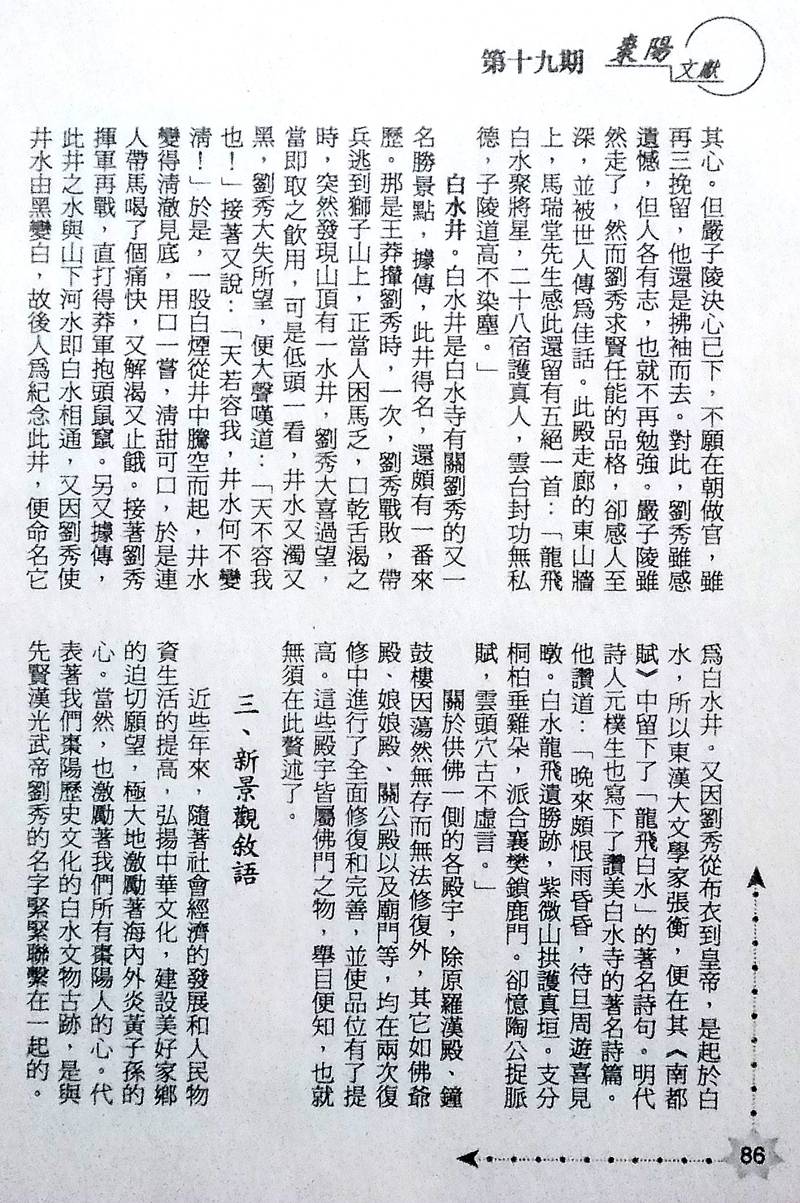 棗陽
文獻
第十九期
其心。但嚴子陵決心已下，不願在朝做官，雖
再三挽留，他還是拂袖而去。對此，劉秀雖感
遺憾，但人各有志，也就不再勉強。嚴子陵雖
然走了，然而劉秀求賢任能的品格，卻感人至
深，並被世人傳爲佳話。此殿走廊的東山牆
上，馬瑞堂先生感此還留有五絕一首：「龍飛
白水聚將星，二十八宿護真人，雲台封功無私
德，子陵道高不染塵。」
白水井。白水井是白水寺有關劉秀的又一
名勝景點，據傳，此井得名，還頗有一番來
歷。那是王莽攆劉秀時，一次，劉秀戰敗，帶
兵逃到獅子山上，正當人困馬乏，口乾舌渴之
時，突然發現山頂有一水井，劉秀大喜過望，
當即取之飲用，可是低頭一看，井水又濁又
黑，劉秀大失所望，便大聲嘆道：「天不容我
也！」接著又說：「天若容我，井水何不變
清！」於是，一股白煙從井中騰空而起，井水
變得清澈見底，用口一嘗，清甜可口，於是連
人帶馬喝了個痛快，又解渴又止餓。接著劉秀
揮軍再戰，直打得莽軍抱頭鼠竄。另又據傳，
此井之水與山下河水即白水相通，又因劉秀使
井水由黑變白，故後人爲紀念此井，便命名它
爲白水井。又因劉秀從布衣到皇帝，是起於白
水，所以東漢大文學家張衡，便在其《南都
賦》中留下了「龍飛白水」的著名詩句。明代
詩人元樸生也寫下了讚美白水寺的著名詩篇。
他讚道：「晚來頗恨雨昏昏，待旦周遊喜見
暾。白水龍飛遺勝跡，紫微山拱護真垣。支分
桐柏垂雞朵，派合襄樊鎖鹿門。卻憶陶公捉脈
賦，雲頭穴古不虛言。」
關於供佛一側的各殿宇，除原羅漢殿、鐘
鼓樓因蕩然無存而無法修復外，其它如佛爺
殿、娘娘殿、關公殿以及廟門等，均在兩次復
修中進行了全面修復和完善，並使品位有了提
高。這些殿宇皆屬佛門之物，舉目便知，也就
無須在此贅述了。
三、新景觀敘語
近些年來，隨著社會經濟的發展和人民物
資生活的提高，弘揚中華文化，建設美好家鄉
的迫切願望，極大地激勵著海內外炎黃子孫的
心。當然，也激勵著我們所有棗陽人的心。代
表著我們棗陽歷史文化的白水文物古跡，是與
先賢漢光武帝劉秀的名字緊緊聯繫在一起的。
86